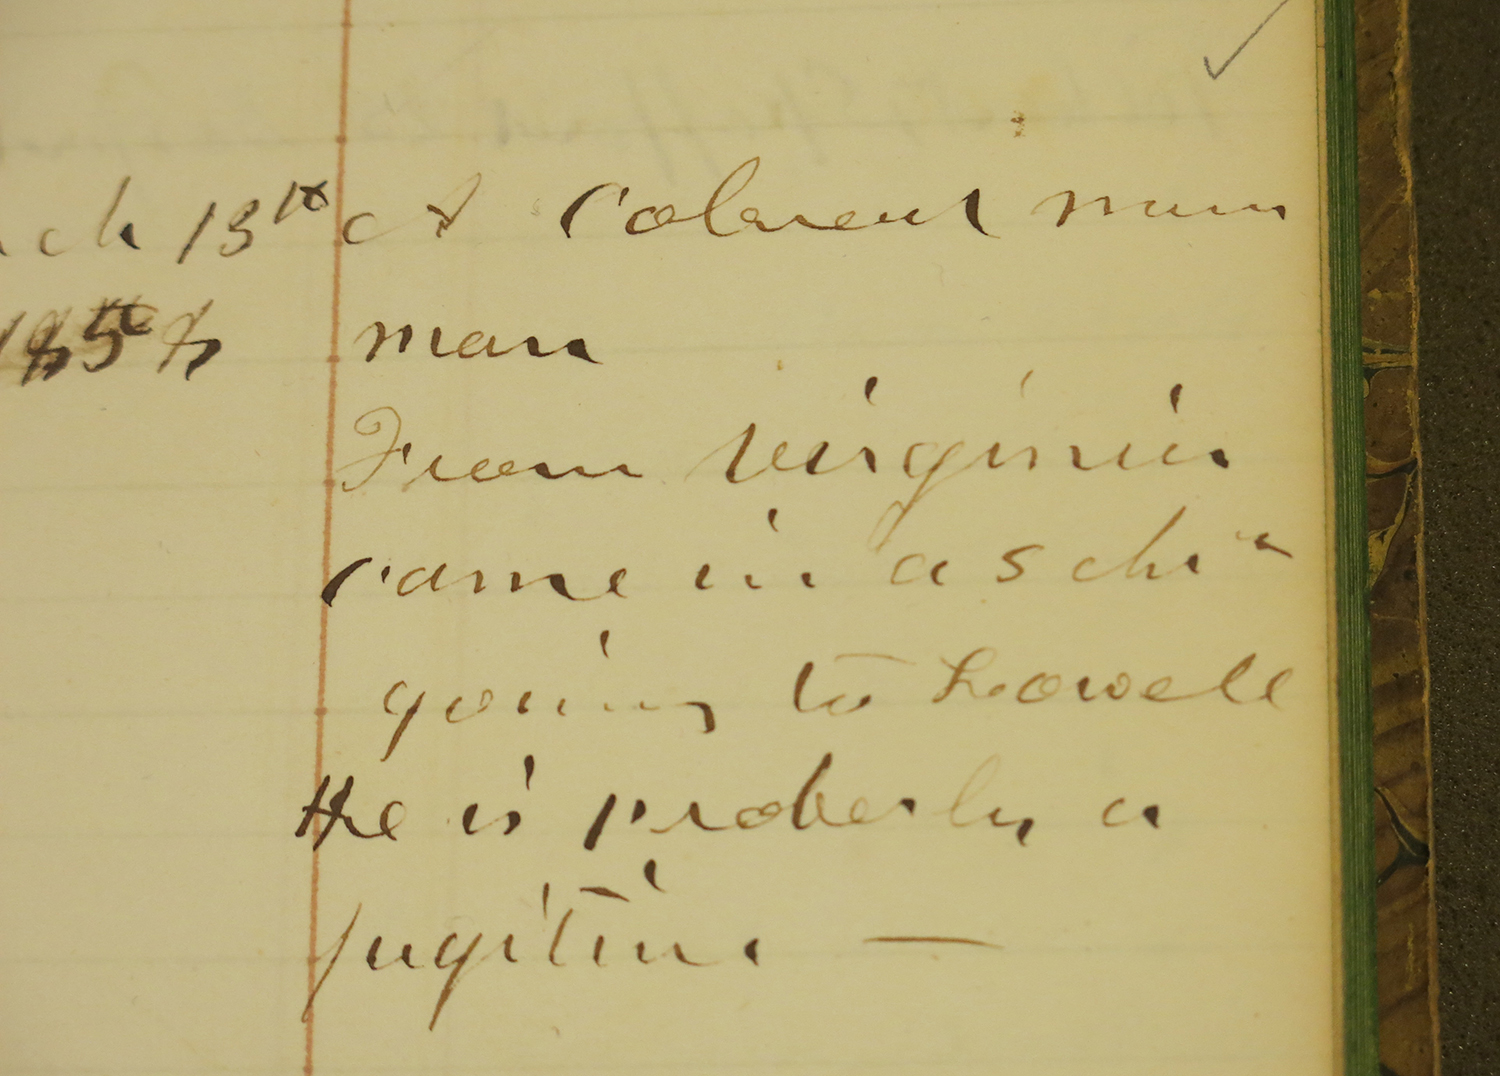 ch 13th A Colored man
1858 man
From Virginia
came in a sch r
going to Lowell
He is proberly a
fugitive —